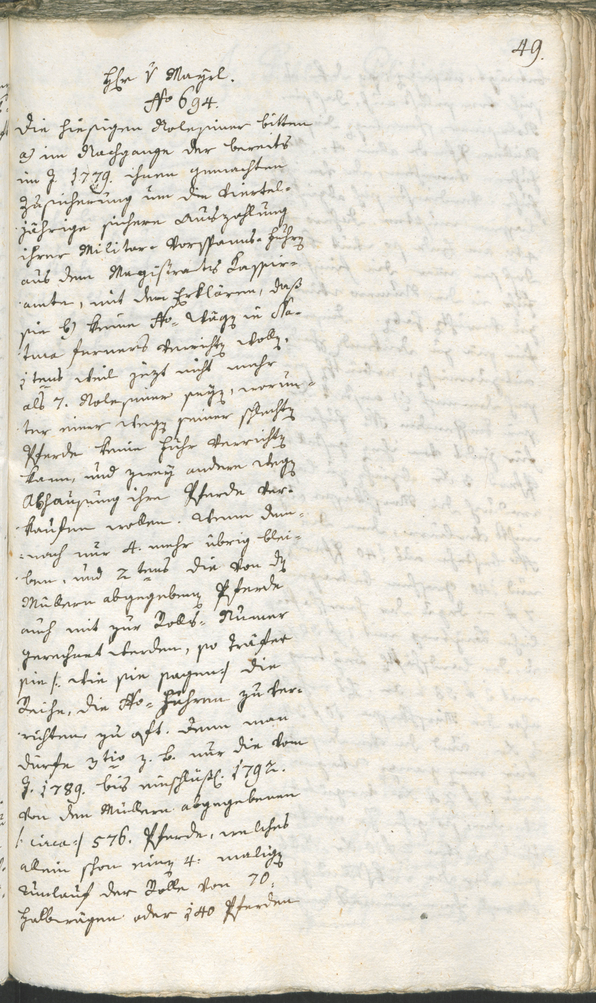 49.
Hr v Mayrl.
No 694.
Die hiesigen Rolesiner bitten
a) im Nachgange der bereits
im J. 1779. ihnen gemachten
Zusicherung um die viertel-
jährige sichere Auszahlung
ihrer Militar-Vorspanns-Fuhrn
aus dem Magistrats Cassier-
amte, mit dem Erklären, daß
sie b) keine No-Wägen in
ferners verrichten wolln,
1tens weil jezt nicht mehr
als 7. Rolesiner seyn, worun-
ter einer wegen seiner schlechten
Pferde keine Fuhr verrichten
kann, und zwey andere wegen
Abhausung ihre Pferde ver-
kaufen wollen. Wenn dem-
nach nur 4. mehr übrig blei-
ben, und 2tens die von den
Müllern abgegebenen Pferde
auch mit zur Rolls-Numer
gerechnet werden, so träfee
sie /: wie sie sagen :/ die
Reihe, die No-Fuhren zu ver-
richten zu oft. Denn man
dürfe 3tio z. B. nur die vom
J. 1789. bis einschlüßl. 1792.
von den Müllern abgegebenen
/: circa :/ 576. Pferde, welches
allein schon einen 4. maligen
Umlauf der Rolle von 70.
Halbwägen oder 140 Pferden